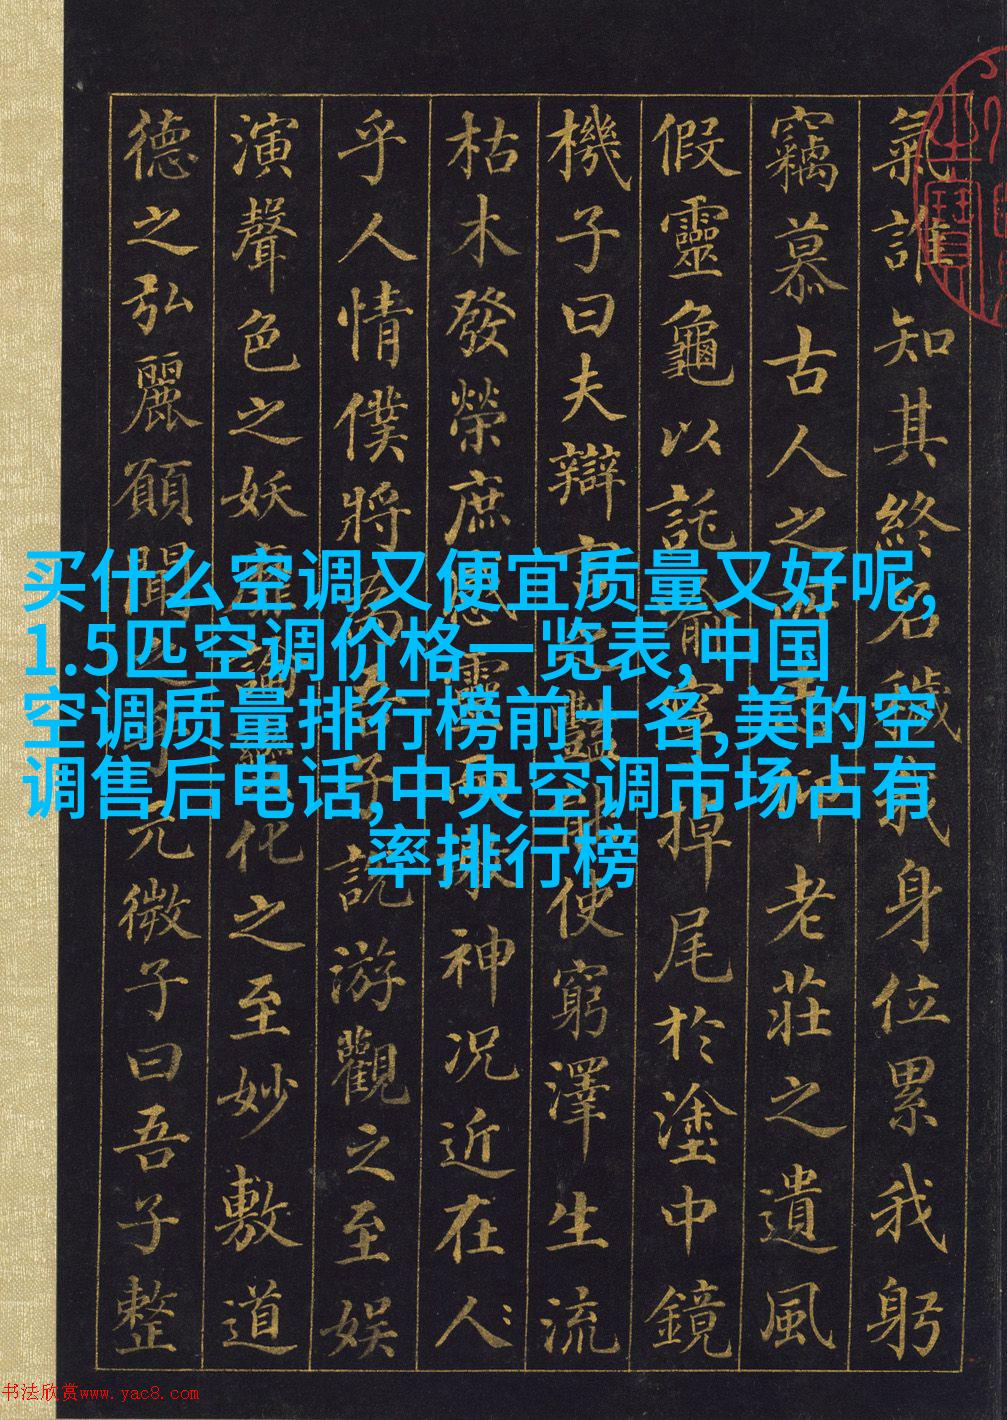 氣誰知其終名穢我身位累我躬
竊慕古人之所志仰老莊之遺風
假靈龜以託喻寧掉尾於塗中鏡
機子曰夫辯言之豔能使窮澤生流
枯木發榮庶感靈而激神況近在人
乎人情僕將為吾子說游觀之至娛
演聲色之妖靡論變化之至妙敷道
德之弘麗願聞之乎元微子曰吾子整
买什么空调又便宜质量又好呢,
1.5匹空调价格一览表,中国
空调质量排行榜前十名,美的空
调售后电话,中央空调市场占有
率排行榜
书法欣赏www.yac8.com